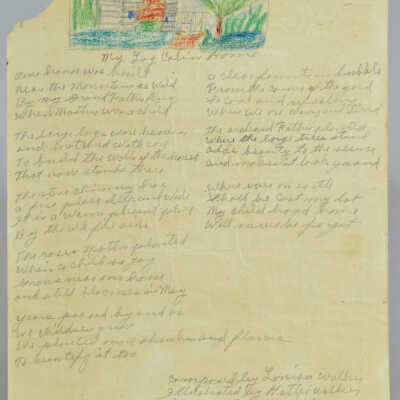 My Log Cabin Home
One house was built
Near the Mountains so Wild
By my Grand Father King
When Mother was a child
The large logs were hewn
and notched with care
To build the walls of the house
That now stands there
The stone chimney has
a fire place deep and wide
It is a warm pleasant place
By the old fire side
The roses Mother planted
When a child so gay
Grows near our house
and still bloomes in May
years passed by and as
We children grew
We planted more shrubs and flowers
To beautify it too
a clear fountain bubbles
From the
so cool and refreshing
When we are
The orchard Father planted
where the large trees stand
adds beauty to the scene
and makes it look grand
Where ever on earth
It shall be Cast my lot
My child hood home
Will never be forgot
Composed by Louisa Walker
Illustrated by Hattie Walker